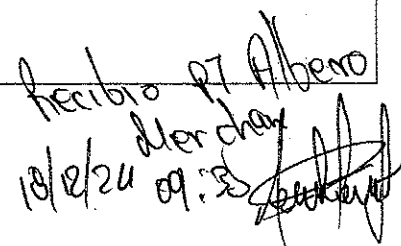 Recibio PT Albeno
Merchan
18/12/24 09:53